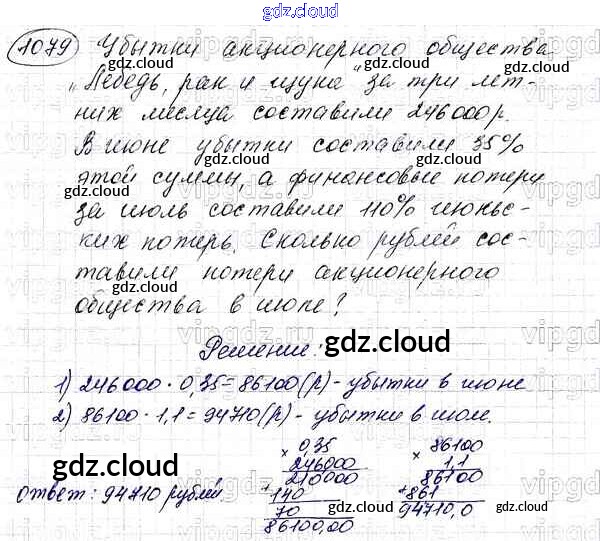 gdz.cloud
1079 Убытки акционерного общества
"Лебедь, рак и щука" за три лет-
них месяца составили 246000р.
В июне убытки составили 35%
этой суммы, а финансовые потери
за июль составили 110% июньс-
ких потерь. Сколько рублей сос-
тавили потери акционерного
общества в июле?
gdz.cloud
Решение:
1) 246000 · 0,35 = 86100(р) - убытки в июне
2) 86100 · 1,1 = 94710(р) - убытки в июле.
gdz.cloud
× 0,35
246000
210000
+ 140
70
86100,00
× 86100
1,1
86100
+ 861
94710,0
ответ: 94710 рублей
gdz.cloud
gdz.cloud
gdz.cloud
gdz.cloud
gdz.cloud
gdz.cloud